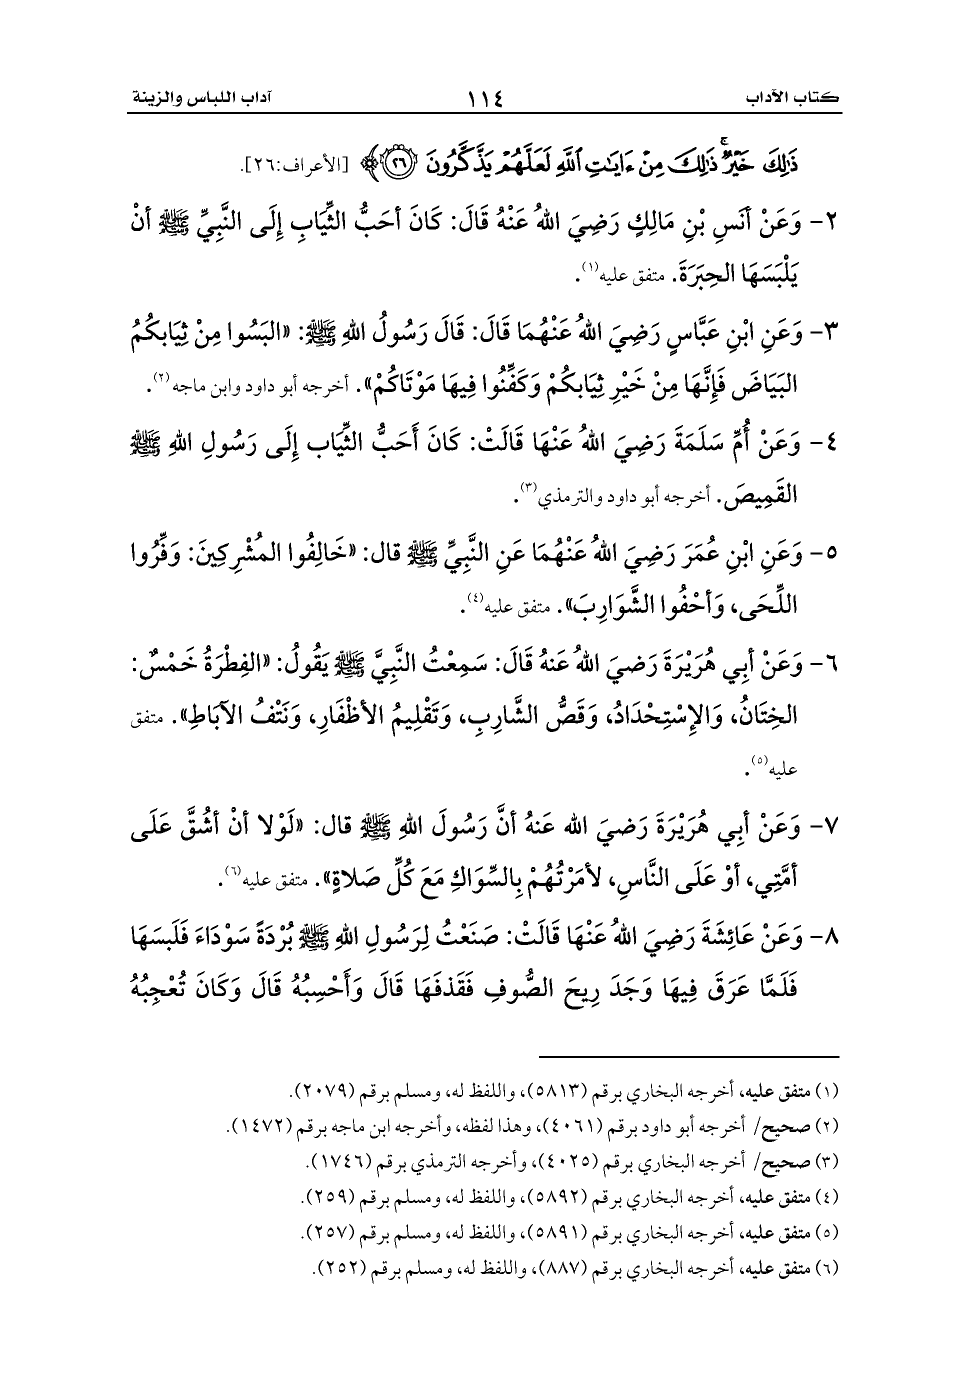 كتاب الآداب ١١٤ آداب اللباس والزينة
ذَٰلِكَ خَيْرٌۚ ذَٰلِكَ مِنْ ءَايَٰتِ ٱللَّهِ لَعَلَّهُمْ يَذَّكَّرُونَ ﴿٢٦﴾ [الأعراف:٢٦].
٢- وَعَنْ أنَسِ بْنِ مَالِكٍ رَضِيَ اللهُ عَنْهُ قَالَ: كَانَ أحَبُّ الثِّيَابِ إِلَى النَّبِيِّ ﷺ أنْ
يَلْبَسَهَا الحِبَرَةَ. متفق عليه(١).
٣- وَعَنِ ابْنِ عَبَّاسٍ رَضِيَ اللهُ عَنْهُمَا قَالَ: قَالَ رَسُولُ اللهِ ﷺ: «البَسُوا مِنْ ثِيَابِكُمُ
البَيَاضَ فَإِنَّهَا مِنْ خَيْرِ ثِيَابِكُمْ وَكَفِّنُوا فِيهَا مَوْتَاكُمْ». أخرجه أبو داود وابن ماجه(٢).
٤- وَعَنْ أُمِّ سَلَمَةَ رَضِيَ اللهُ عَنْهَا قَالَتْ: كَانَ أَحَبُّ الثِّيَابِ إِلَى رَسُولِ اللهِ ﷺ
القَمِيصَ. أخرجه أبو داود والترمذي(٣).
٥- وَعَنِ ابْنِ عُمَرَ رَضِيَ اللهُ عَنْهُمَا عَنِ النَّبِيِّ ﷺ قال: «خَالِفُوا المُشْرِكِينَ: وَفِّرُوا
اللِّحَى، وَأحْفُوا الشَّوَارِبَ». متفق عليه(٤).
٦- وَعَنْ أبِي هُرَيْرَةَ رَضيَ اللهُ عَنهُ قَالَ: سَمِعْتُ النَّبِيَّ ﷺ يَقُولُ: «الفِطْرَةُ خَمْسٌ:
الخِتَانُ، وَالإِسْتِحْدَادُ، وَقَصُّ الشَّارِبِ، وَتَقْلِيمُ الأظْفَارِ، وَنَتْفُ الآبَاطِ». متفق
عليه(٥).
٧- وَعَنْ أبِي هُرَيْرَةَ رَضيَ الله عَنهُ أنَّ رَسُولَ اللهِ ﷺ قال: «لَوْلا أنْ أشُقَّ عَلَى
أمَّتِي، أوْ عَلَى النَّاسِ، لأمَرْتُهُمْ بِالسِّوَاكِ مَعَ كُلِّ صَلاةٍ». متفق عليه(٦).
٨- وَعَنْ عَائِشَةَ رَضِيَ اللهُ عَنْهَا قَالَتْ: صَنَعْتُ لِرَسُولِ اللهِ ﷺ بُرْدَةً سَوْدَاءَ فَلَبِسَهَا
فَلَمَّا عَرَقَ فِيهَا وَجَدَ رِيحَ الصُّوفِ فَقَذفَهَا قَالَ وَأَحْسِبُهُ قَالَ وَكَانَ تُعْجِبُهُ
(١) متفق عليه، أخرجه البخاري برقم (٥٨١٣)، واللفظ له، ومسلم برقم (٢٠٧٩).
(٢) صحيح/ أخرجه أبو داود برقم (٤٠٦١)، وهذا لفظه، وأخرجه ابن ماجه برقم (١٤٧٢).
(٣) صحيح/ أخرجه البخاري برقم (٤٠٢٥)، وأخرجه الترمذي برقم (١٧٤٦).
(٤) متفق عليه، أخرجه البخاري برقم (٥٨٩٢)، واللفظ له، ومسلم برقم (٢٥٩).
(٥) متفق عليه، أخرجه البخاري برقم (٥٨٩١)، واللفظ له، ومسلم برقم (٢٥٧).
(٦) متفق عليه، أخرجه البخاري برقم (٨٨٧)، واللفظ له، ومسلم برقم (٢٥٢).